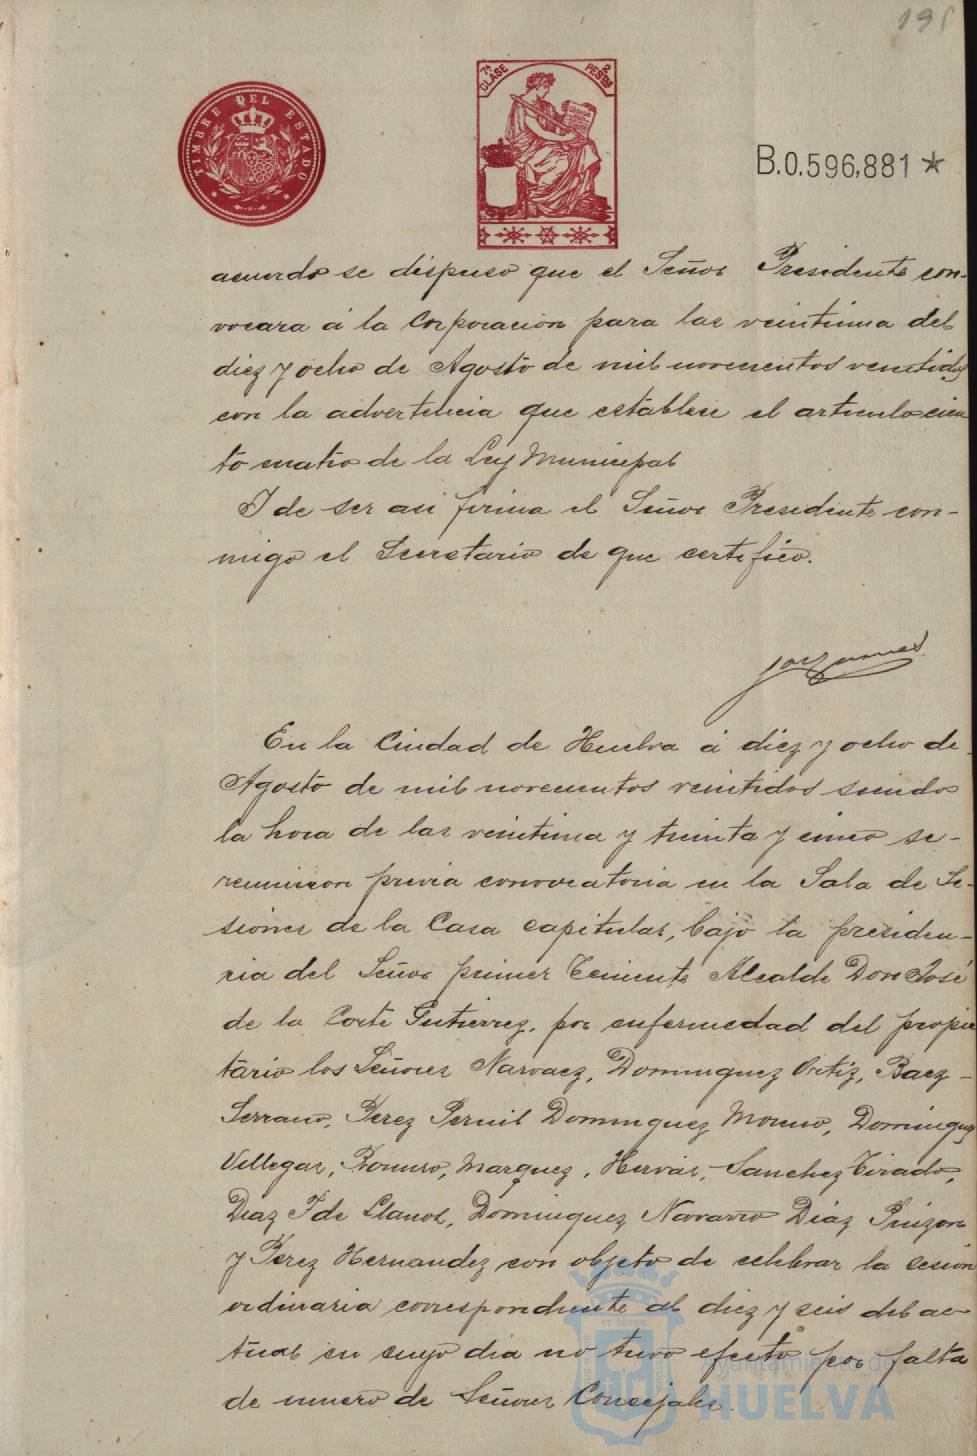 195
TIMBRE DEL ESTADO
7ª CLASE
2 PESTAS
B.0.596,881 *
acuerdo se dispuso que el Señor Presidente con-
vocara á la Corporacion para las veintiuna del
diez y ocho de Agosto de mil novecientos veintidos
con la advertencia que establece el articulo cien
to cuatro de la Ley Municipal
Y de ser asi firma el Señor Presidente con-
migo el Secretario de que certifico.
En la Ciudad de Huelva á diez y ocho de
Agosto de mil novecientos veintidos siendo
la hora de las veintiuna y treinta y cinco se-
reunieron previa convocatoria en la Sala de Se-
siones de la Casa capitular, bajo la presiden-
cia del Señor primer Teniente Alcalde Don José
de la Corte Gutierrez, por enfermedad del propie
tario los Señores Narvaez, Dominguez Ortiz, Baez
Serrano, Perez Pernil Dominguez Moreno, Dominguez
Villegas, Romero, Marquez, Hervás, Sanchez Tirado,
Diaz F de Llanos, Dominguez Navarro Diaz Pinzon
y Perez Hernandez con objeto de celebrar la sesion
ordinaria correspondiente al diez y seis del ac-
tual en cuyo dia no tuvo efecto por falta
de numero de Señores Concejales.
Ayuntamiento de
HUELVA